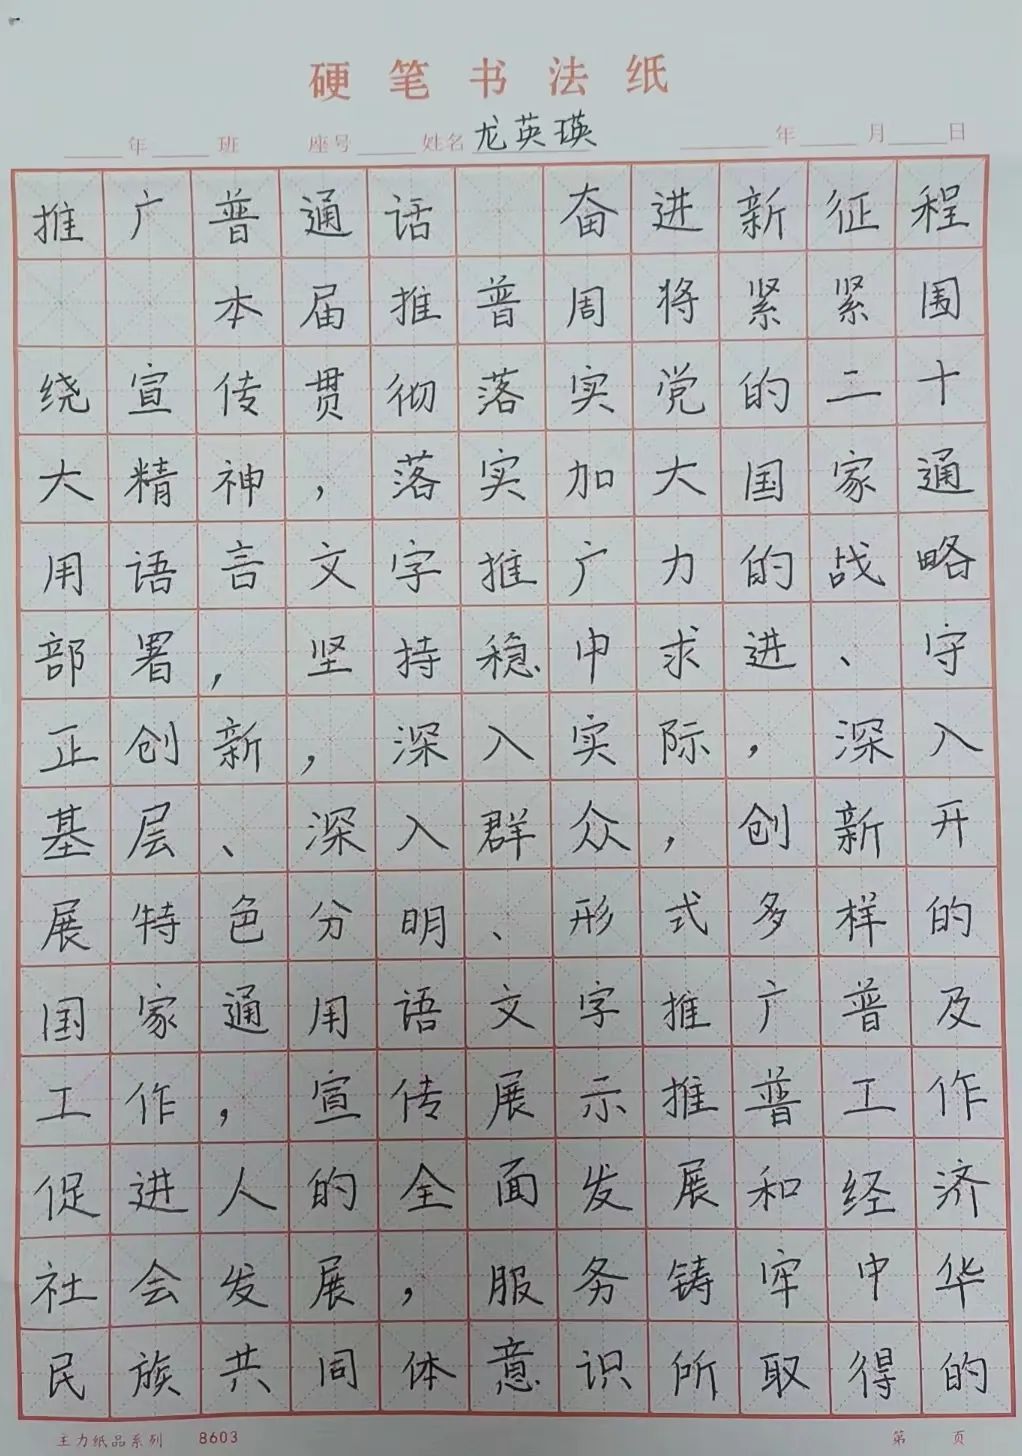 硬笔书法纸
年 班 座号 姓名 龙英瑛 年 月 日
推广普通话 奋进新征程
本届推普周将紧紧围
绕宣传贯彻落实党的二十
大精神，落实加大国家通
用语言文字推广力的战略
部署，坚持稳中求进、守
正创新，深入实际，深入
基层、深入群众，创新开
展特色分明、形式多样的
国家通用语文字推广普及
工作，宣传展示推普工作
促进人的全面发展和经济
社会发展，服务铸牢中华
民族共同体意识所取得的
主力纸品系列 8603 第 页